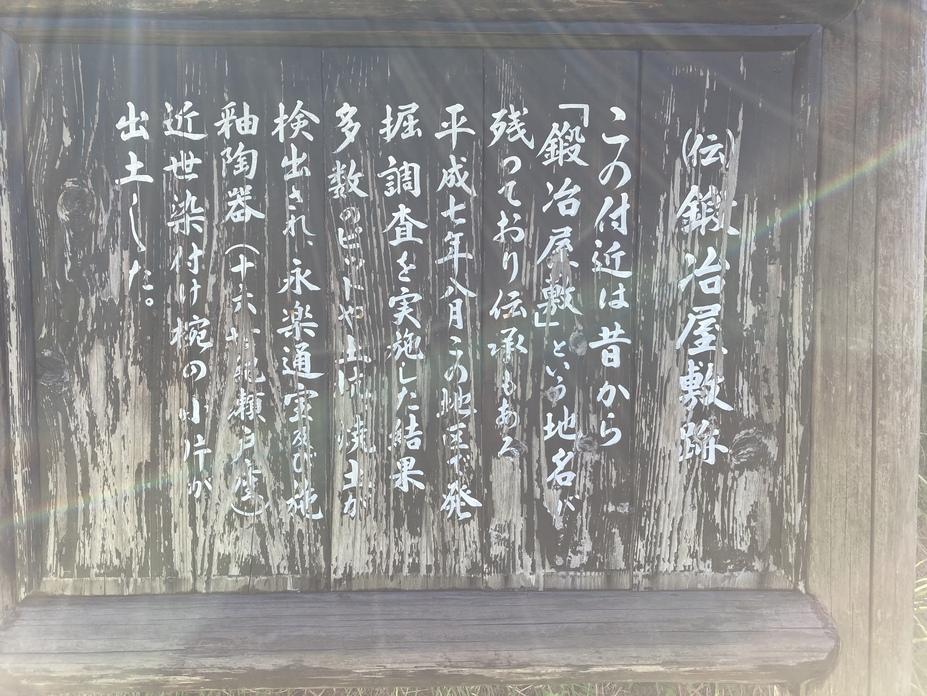 (伝)鍛冶屋敷跡
この付近は昔から
「鍛冶屋敷」という地名が
残っており伝承もある
平成七年八月この地区で発
掘調査を実施した結果
多数のピットや土坑、焼土が
検出され、永楽通宝及び施
釉陶器(十六世紀瀬戸窯)
近世染付け椀の小片が
出土した。